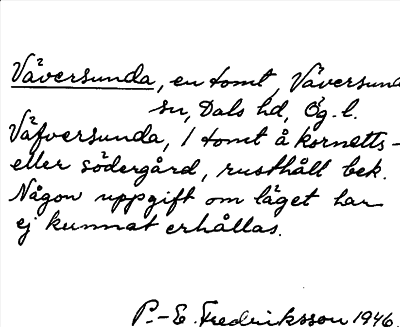 Väversunda, en tomt, Väversunda
sn, Dals hd, Ög. l.
Väfversunda, 1 tomt å kornetts-
eller södergård, rusthåll bek.
Någon uppgift om läget har
ej kunnat erhållas.
P.-E. Fredriksson 1946.